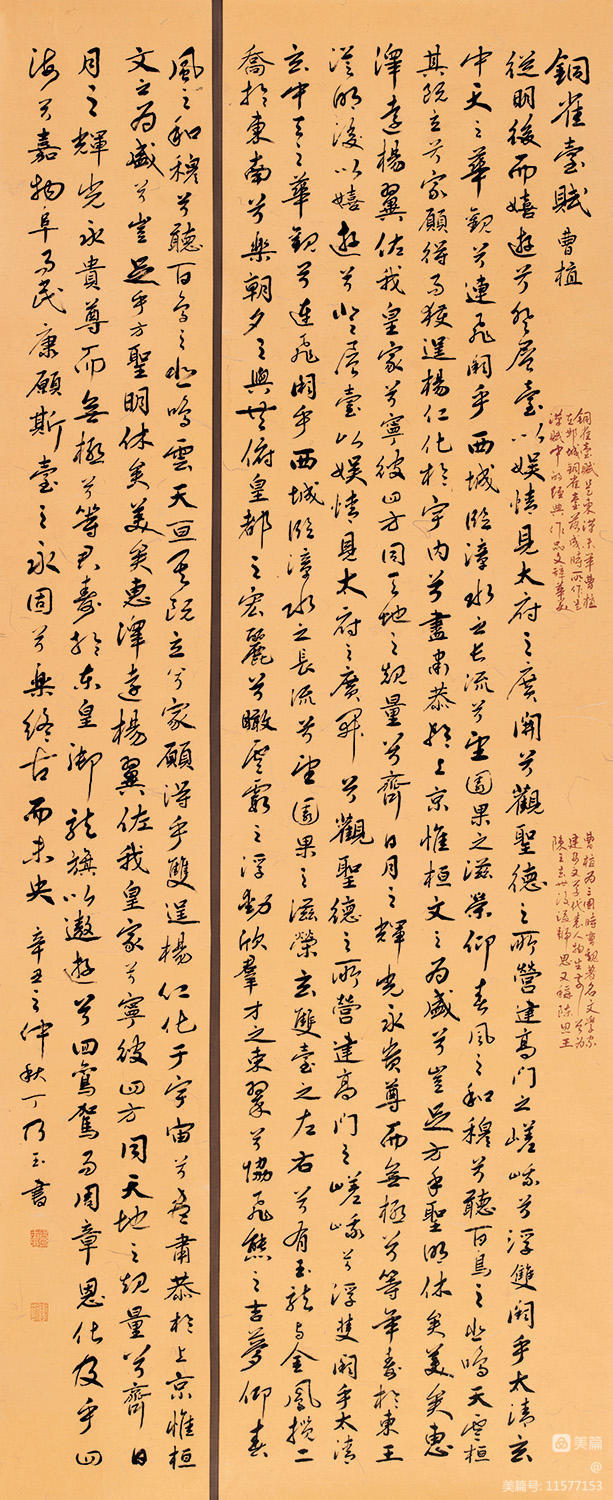 銅雀臺賦 曹植
從明後而嬉遊兮登層臺以娱情見太府之廣開兮觀聖德之所營建高門之嵯峨兮浮雙闕乎太清立
中天之華觀兮連飛閣乎西城臨漳水之長流兮望園果之滋榮仰春風之和穆兮聽百鳥之悲鳴天雲桓
其既立兮家願得而獲逞楊仁化於宇内兮盡肅恭於上京惟桓文之為盛兮豈足方乎聖明休矣美矣惠
澤遠楊翼佐我皇家兮寧彼四方同天地之規量兮齊日月之輝光永貴尊而無極兮等年壽於東王
從明後以嬉遊兮登層臺以娱情見太府之廣開兮觀聖德之所營建高門之嵯峨兮浮雙闕乎太清
立中天之華觀兮連飛閣乎西城臨漳水之長流兮望園果之滋榮立雙臺之左右兮有玉龍与金鳳攬二
喬於東南兮樂朝夕之與共俯皇都之宏麗兮瞰雲霞之浮動欣羣才之來萃兮協飛熊之吉夢仰春
風之和穆兮聽百鳥之悲鳴雲天亘其既立兮家願得乎雙逞楊仁化于宇宙兮盡肅恭於上京惟桓
文之為盛兮豈足乎方聖明休矣美矣惠澤遠楊翼佐我皇家兮寧彼四方同天地之規量兮齊日
月之輝光永貴尊而無極兮等君壽於東皇御龍旗以遨遊兮回鸞駕而周章恩化及乎四
海兮嘉物阜而民康願斯臺之永固兮樂終古而未央 辛丑之仲秋丁乃玉書
銅雀臺賦是東漢末年曹植
在邺城銅雀臺落成時所作是
漢賦中的經典作品文辞華美
曹植为三國時曹魏著名文學家
建安文学代表人物生前曾为
陳王去世後諡號思又稱陳思王
美篇
@
美篇号: 11577153